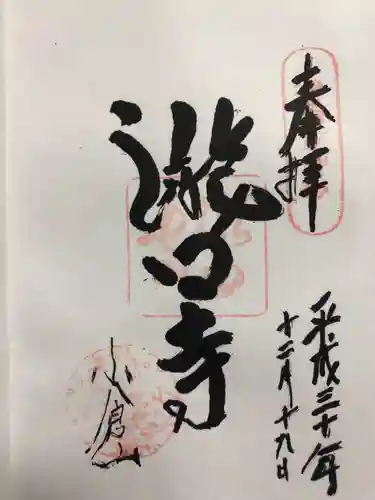 奉拝
平成三十年
十二月十九日
瀧口寺
小倉山